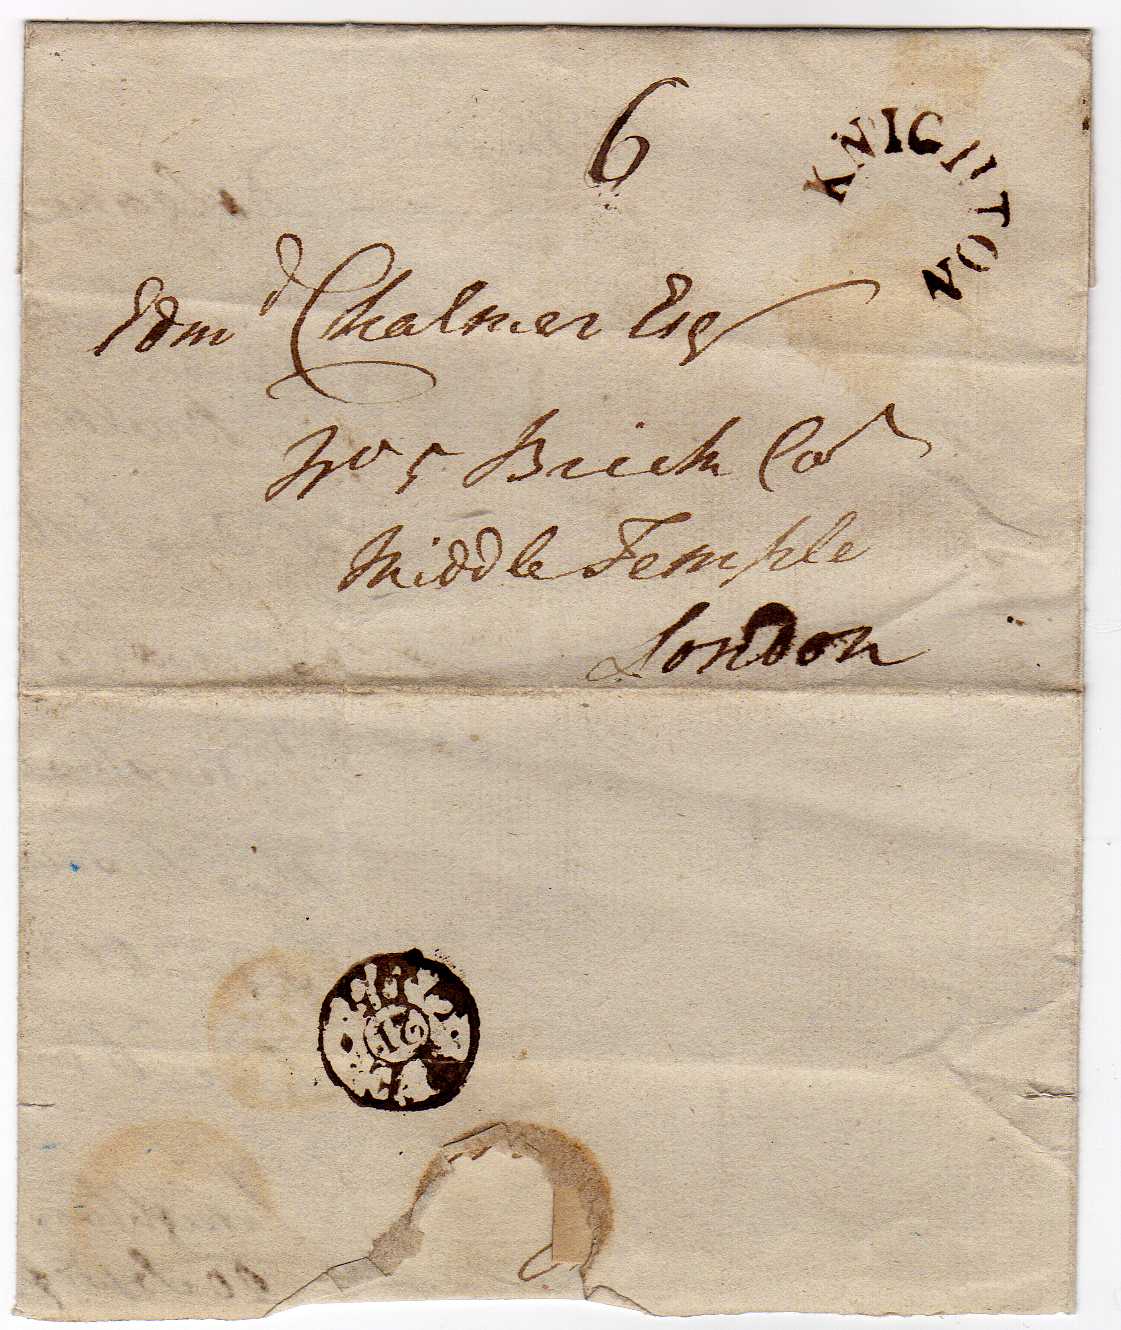 6
KNIGHTON
Edmd Chalmer Esq
No 5 Brick Cot
Middle Temple
London
21